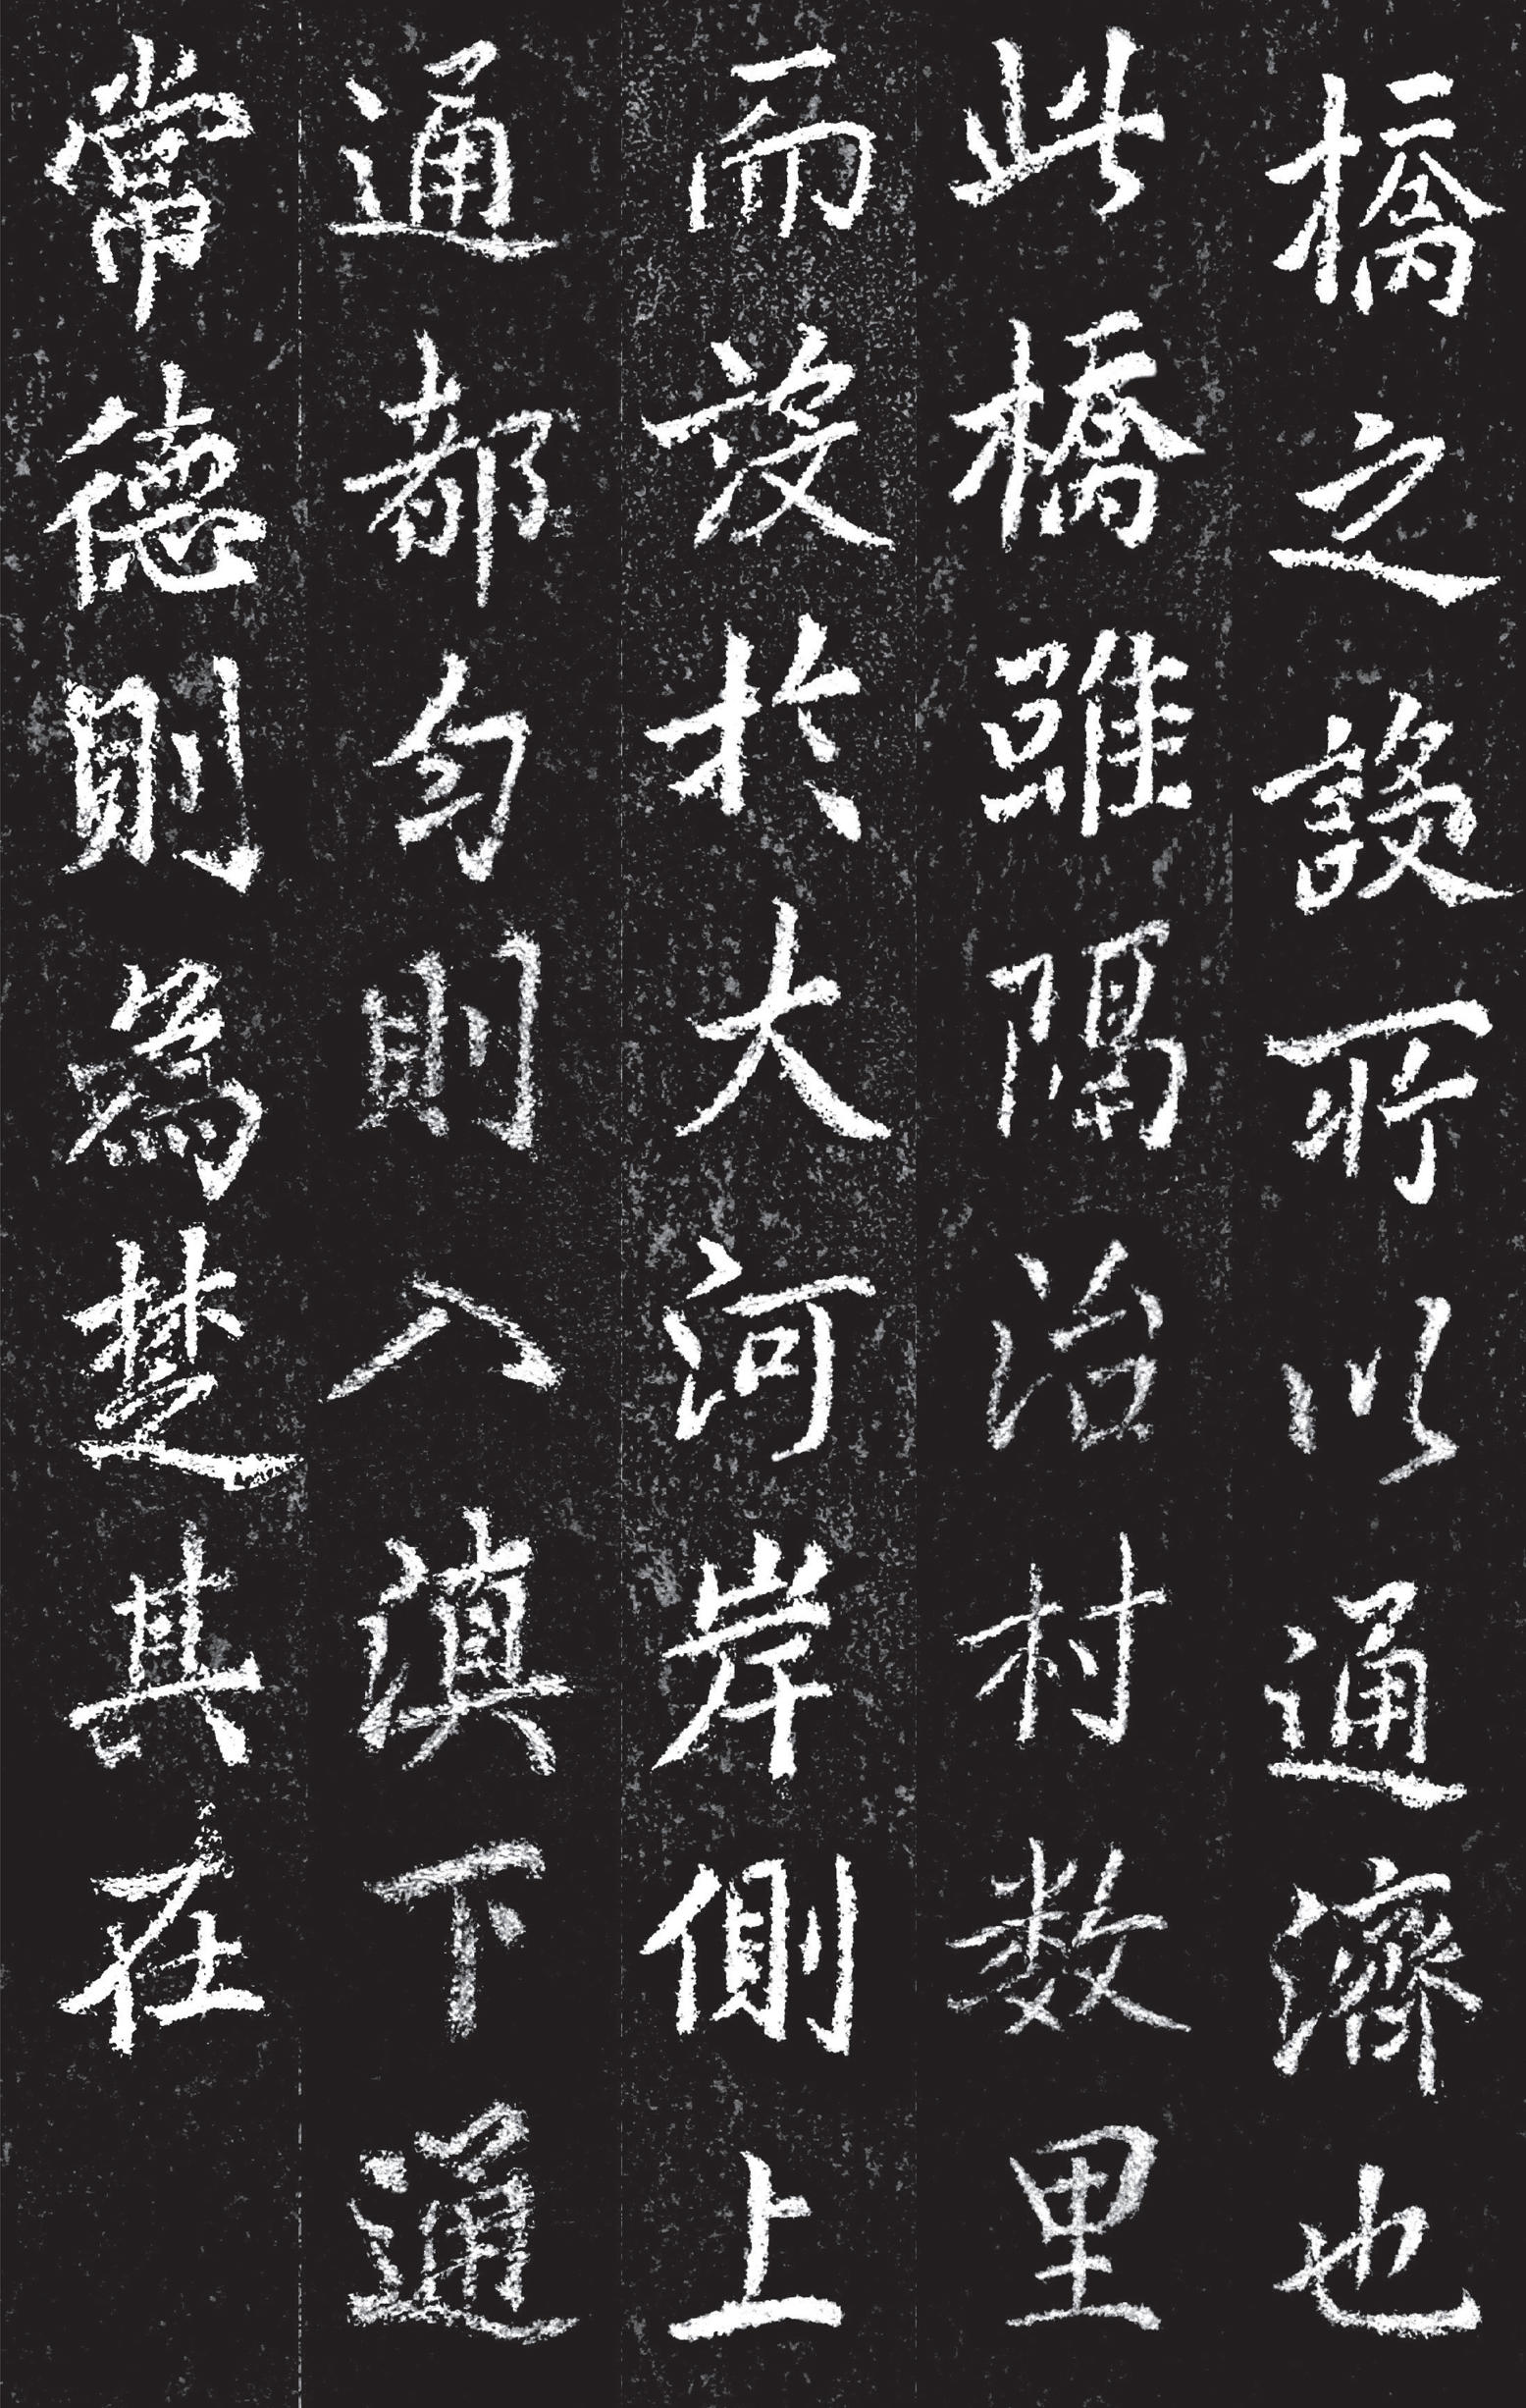 橋之設所以通濟也
此橋雖隔治村数里
而設於大河岸側上
通都匀則入滇下通
常德則為楚其在